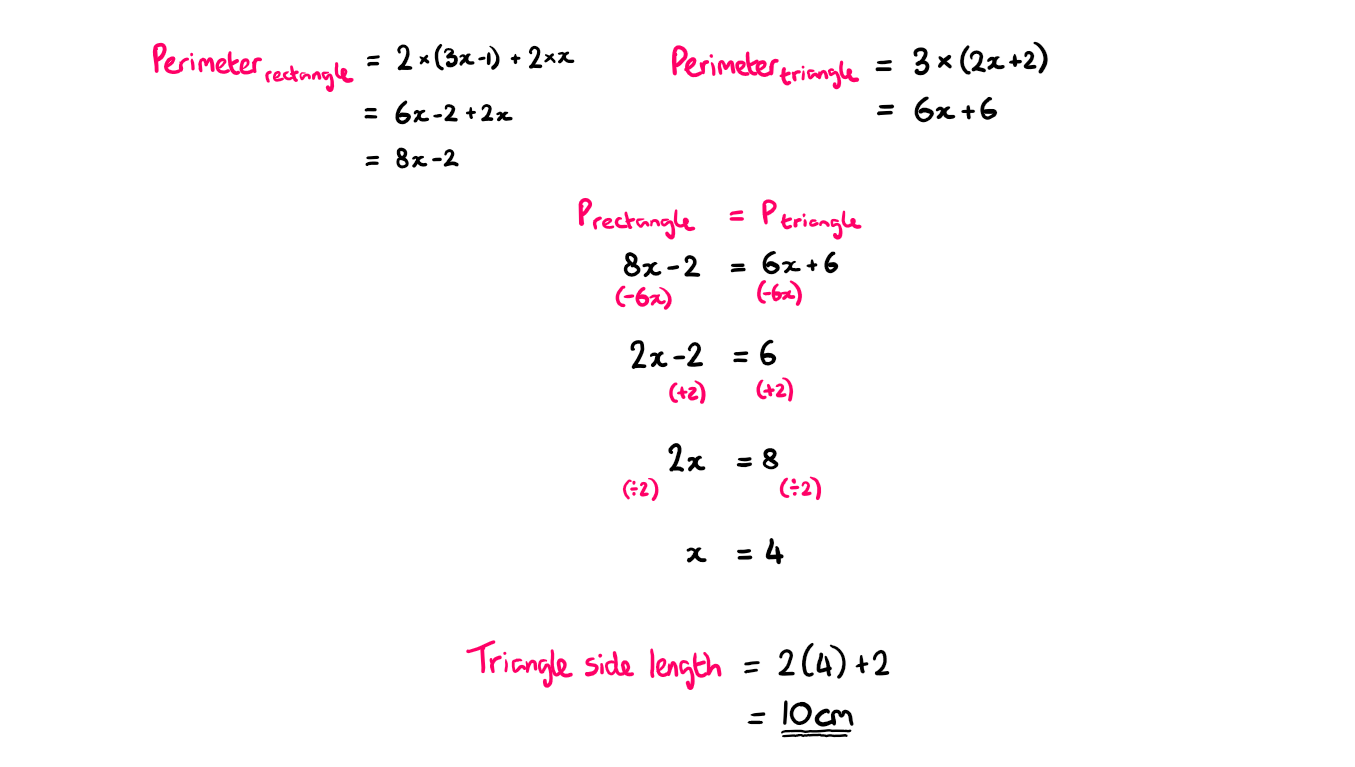 Perimeter rectangle = 2 × (3x-1) + 2×x
= 6x-2+2x
= 8x-2
Perimeter triangle = 3 × (2x+2)
= 6x+6
P rectangle = P triangle
8x-2 = 6x+6
(-6x) (-6x)
2x-2 = 6
(+2) (+2)
2x = 8
(÷2) (÷2)
x = 4
Triangle side length = 2(4)+2
= 10cm